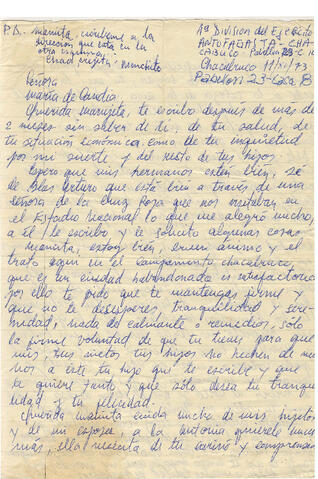 P.D. mamita, escríbeme a la
dirección que está en la
otra esquina.
Chao viejita: Munchito
1ª Division del Ejército
ANTOFAGASTA - CHA-
CABUCO - Pabellon 23-C 10
Chacabuco 11/XI/73
PABELLON 23-CASA 8
Señora
María de Candia.
Querida mamita, te escribo después de más de
2 meses sin saber de ti, de tu salud, de
tu situación económica, como de tu inquietud
por mi suerte y del resto de tus hijos.
Espero que mis hermanos estén bien, sé
de Blas Arturo que está bien a través de una
señora de la Cruz Roja que nos visitaba en
el Estadio Nacional lo que me alegró mucho,
a él le escribo y le solicito algunas cosas
Mamita, estoy bien, buen ánimo y el
trato aquí en el campamento chacabuco
que es una ciudad abandonada es satisfactorio
por ello te pido que te mantengas firme y
que no te desesperes, tranquilidad y sere-
nidad, nada de calmante o remedios, sólo
la firme voluntad de que tu tienes para que
mis, tus nietos tus hijos no hechen de me
nos a este tu hijo que te escribe y que
te quiere tanto y que sólo desea tu tranqui
lidad y tu felicidad.
Querida mamita cuida mucho de mis hijitos
y de mi esposa, a la Antonia quierele mucho
más, ella necesita de tu cariño y comprensión